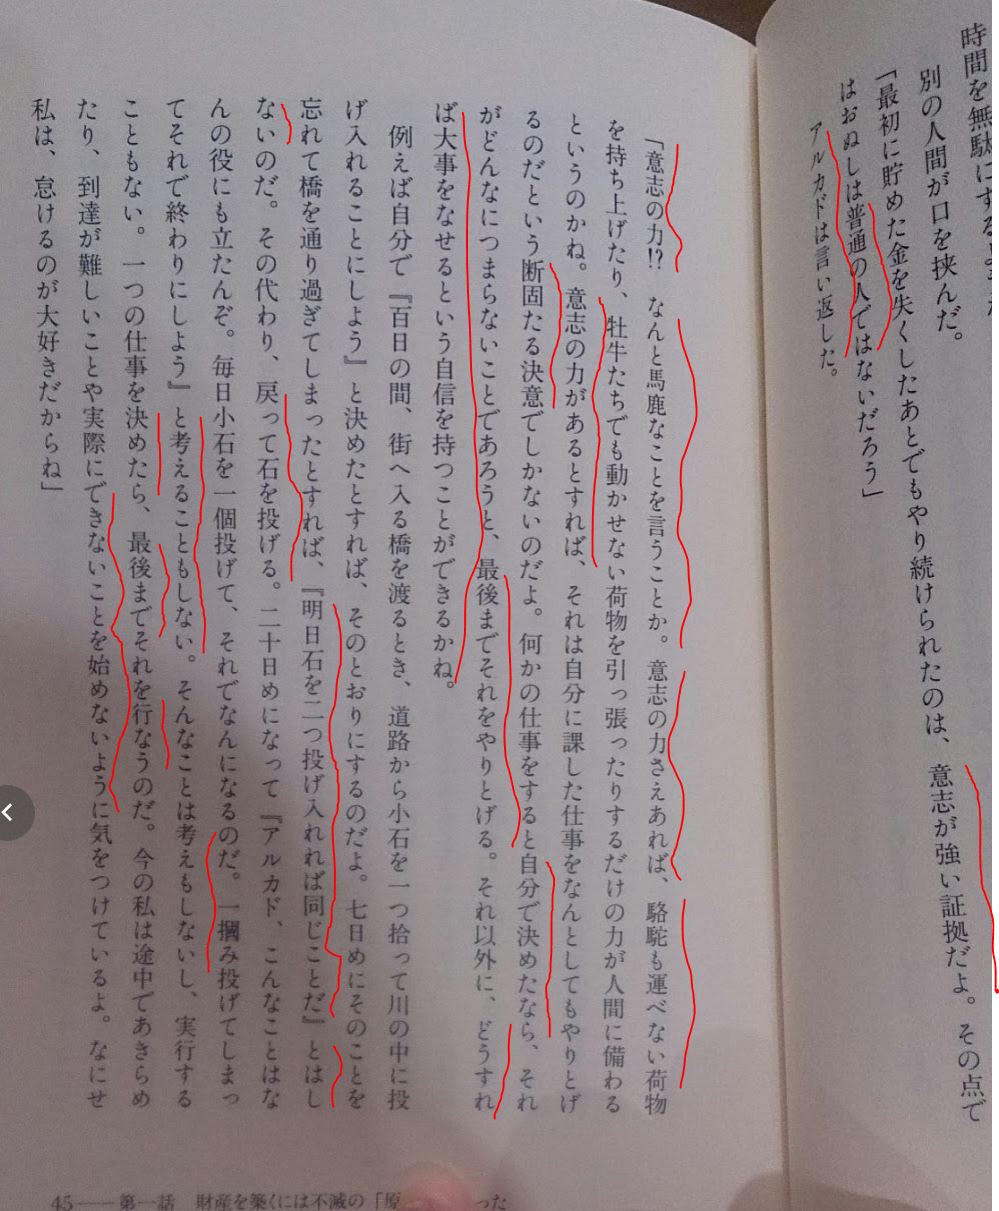 時間を無駄にするよ
別の人間が口を挟んだ。
「最初に貯めた金を失くしたあとでもやり続けられたのは、意志が強い証拠だよ。その点で
はおぬしは普通の人ではないだろう」
アルカドは言い返した。
「意志の力!? なんと馬鹿なことを言うことか。意志の力さえあれば、駱駝も運べない荷物
を持ち上げたり、牡牛たちでも動かせない荷物を引っ張ったりするだけの力が人間に備わる
というのかね。意志の力があるとすれば、それは自分に課した仕事をなんとしてもやりとげ
るのだという断固たる決意でしかないのだよ。何かの仕事をすると自分で決めたなら、それ
がどんなにつまらないことであろうと、最後までそれをやりとげる。それ以外に、どうすれ
ば大事をなせるという自信を持つことができるかね。
例えば自分で『百日の間、街へ入る橋を渡るとき、道路から小石を一つ拾って川の中に投
げ入れることにしよう』と決めたとすれば、そのとおりにするのだよ。七日めにそのことを
忘れて橋を通り過ぎてしまったとすれば、『明日石を二つ投げ入れれば同じことだ』とはし
ないのだ。その代わり、戻って石を投げる。二十日めになって『アルカド、こんなことはな
んの役にも立たんぞ。毎日小石を一個投げて、それでなんになるのだ。一摑み投げてしまっ
てそれで終わりにしよう』と考えることもしない。そんなことは考えもしないし、実行する
こともない。一つの仕事を決めたら、最後までそれを行なうのだ。今の私は途中であきらめ
たり、到達が難しいことや実際にできないことを始めないように気をつけているよ。なにせ
私は、怠けるのが大好きだからね」
45──第一話 財産を築くには不滅の「原 った